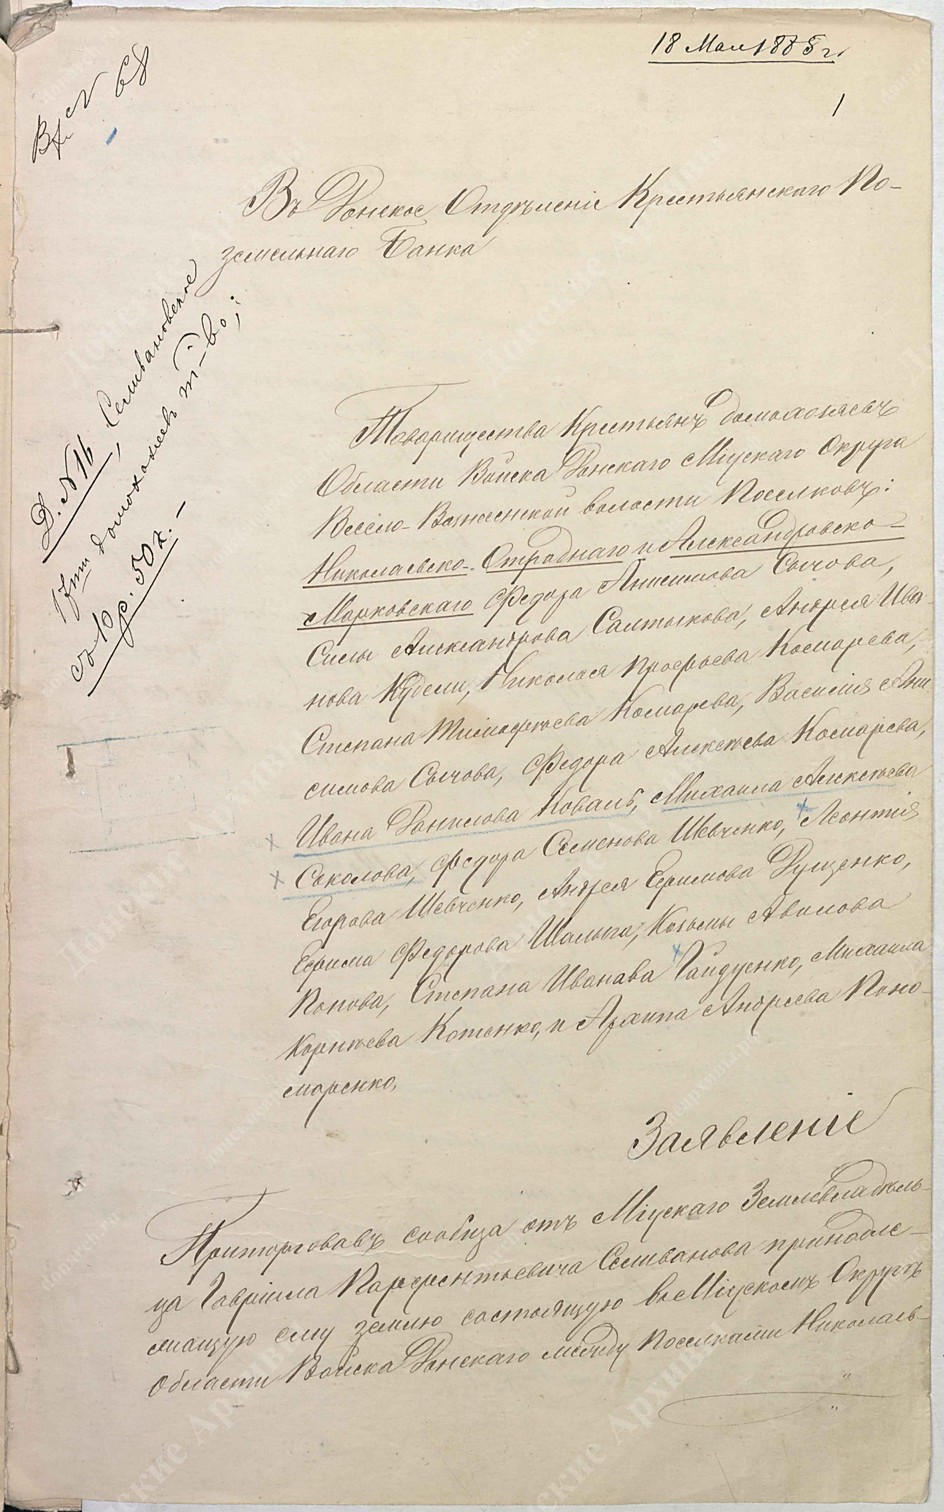 18 Мая 1888 г.
1
Вх. № 68
Въ Донское Отдѣленіе Крестьянскаго По-
земельнаго Банка
Д. № 16, Селивановское
17ти домохозяевъ т-во;
съ 10 р. 50 к. -
Товарищества Крестьянъ домохозяевъ
Области Войска Донскаго Міускаго Округа
Весело-Вознесенской волости Поселковъ:
Николаевско-Отраднаго и Александровско-
Марковскаго Федора Анисимова Сычова,
Силы Александрова Салтыкова, Андрея Ива-
нова Кубели, Николая Профьева Комарева,
Степана Тимофѣева Комарева, Василія Ани
симова Сычова, Федора Алексѣева Комарева,
Ивана Данилова Коваль, Михаила Алексѣева
Соколова, Федора Семенова Шевченко, Леонтія
Егорова Шевченко, Андрея Ефимова Гущенко,
Ефима Федорова Шалыга, Козьмы Авилова
Попова, Степана Иванава Гайдуенко, Михаила
Корнѣева Котенко, и Архипа Андреева Поно-
маренко,
Заявленіе
Приторговавъ сообща отъ Міускаго Землевладѣль-
ца Гавріила Парфентьевича Селиванова принадле-
жащую ему землю состоящую въ Міускомъ Округѣ
Области Войска Донскаго между Поселками Николаев-